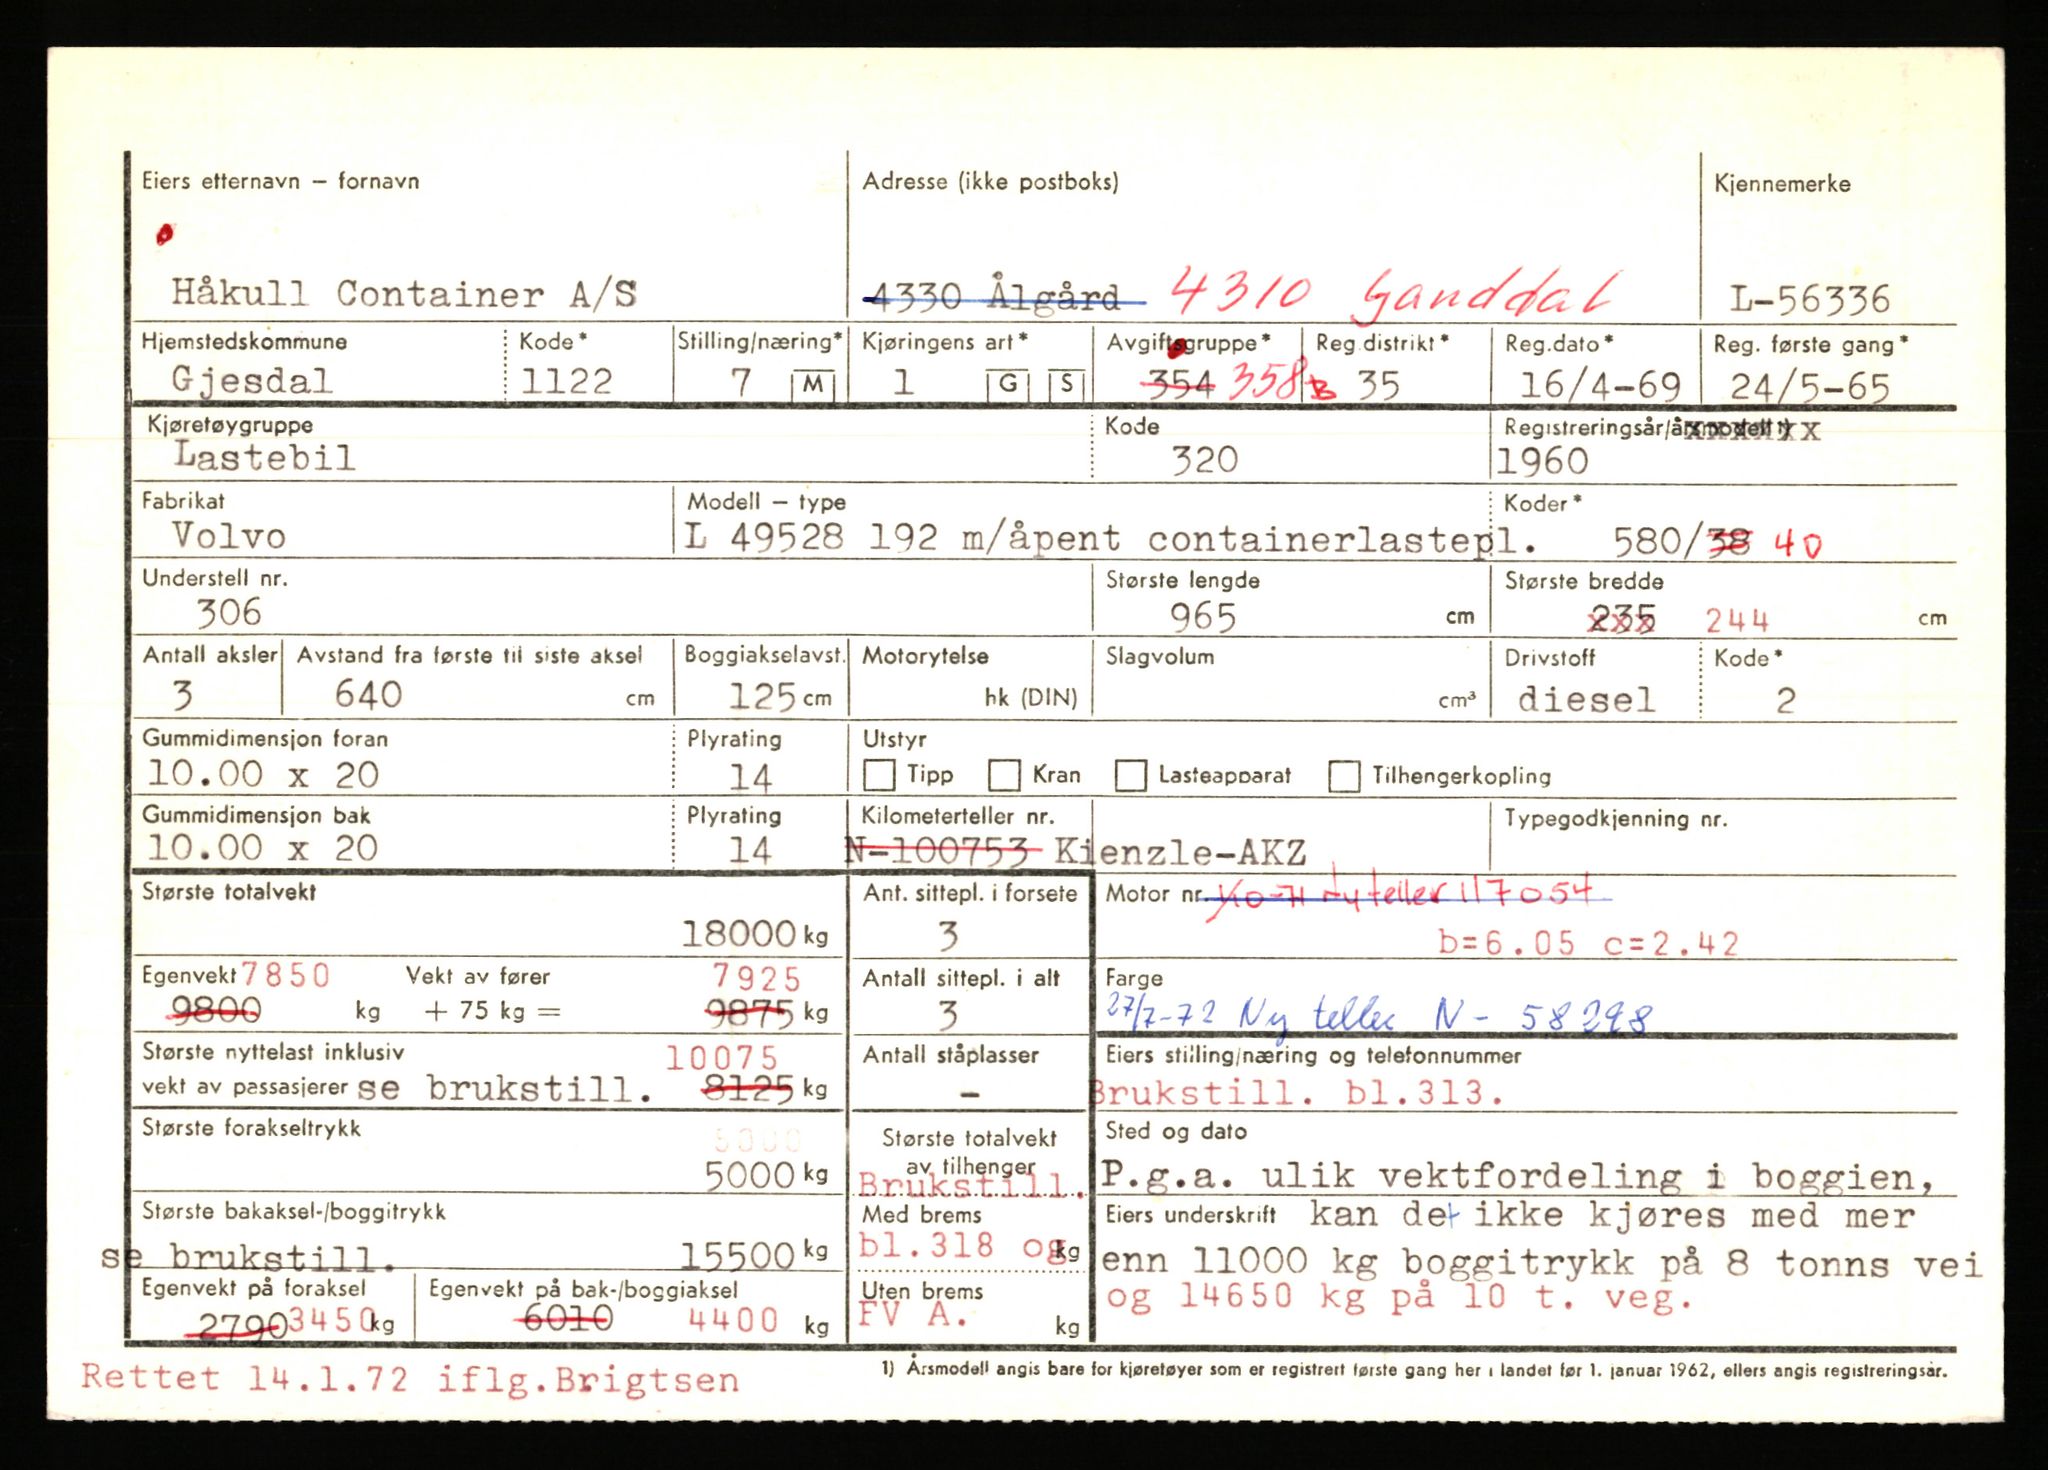 Eiers etternavn – fornavn Adresse (ikke postboks) Kjennemerke
Håkull Container A/S 4330 Ålgård 4310 Ganddal L-56336
Hjemstedskommune Kode* Stilling/næring* Kjøringens art* Avgiftsgruppe* Reg.distrikt* Reg.dato* Reg. første gang*
Gjesdal 1122 7 M 1 G S 354 358 B 35 16/4-69 24/5-65
Kjøretøygruppe Kode Registreringsår/årsmodell 1)
Lastebil 320 1960
Fabrikat Modell – type Koder*
Volvo L 49528 192 m/åpent containerlastepl. 580/38 40
Understell nr. Største lengde Største bredde
306 965 cm 235 244 cm
Antall aksler Avstand fra første til siste aksel Boggiakselavst. Motorytelse Slagvolum Drivstoff Kode*
3 640 cm 125 cm hk (DIN) cm³ diesel 2
Gummidimensjon foran Plyrating Utstyr
10.00 x 20 14 Tipp Kran Lasteapparat Tilhengerkopling
Gummidimensjon bak Plyrating Kilometerteller nr. Typegodkjenning nr.
10.00 x 20 14 N-100753 Kienzle-AKZ
Største totalvekt Ant. sittepl. i forsete Motor nr. Ny teller 117054
18000 kg 3 b=6.05 c=2.42
Egenvekt 7850 Vekt av fører 7925 Antall sittepl. i alt Farge
9800 kg + 75 kg = 9875 kg 3 27/7-72 Ny teller N - 58298
Største nyttelast inklusiv 10075 Antall ståplasser Eiers stilling/næring og telefonnummer
vekt av passasjerer se brukstill. 8125 kg – Brukstill. bl.313.
Største forakseltrykk 5000 Største totalvekt Sted og dato
5000 kg av tilhenger Brukstill. P.g.a. ulik vektfordeling i boggien,
Største bakaksel-/boggitrykk Med brems Eiers underskrift kan det ikke kjøres med mer
se brukstill. 15500 kg bl.318 og kg enn 11000 kg boggitrykk på 8 tonns vei
Egenvekt på foraksel Egenvekt på bak-/boggiaksel Uten brems og 14650 kg på 10 t. veg.
2790 3450 kg 6010 4400 kg FV A. kg
Rettet 14.1.72 iflg.Brigtsen 1) Årsmodell angis bare for kjøretøyer som er registrert første gang her i landet før 1. januar 1962, ellers angis registreringsår.